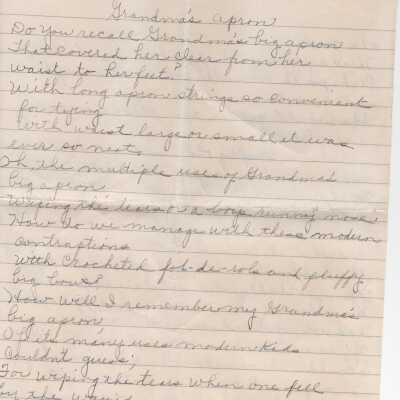 Grandma's Apron
Do You recall Grandma's big apron
That covered her clear from her
waist to her feet?
With long apron strings so convenient
for tying
With waist large or small it was
ever so neat,
Oh, the multiple uses of Grandma's
big apron
Wiping the tears or a boys running nose
How do we manage with these modern
contraptions
With Crocheted fol-de-rols and fluffy
big bows?
How well I remember my Grandma's
big apron,
Of its many uses modern kids
Couldn't guess;
For wiping the tears when one fell
by the